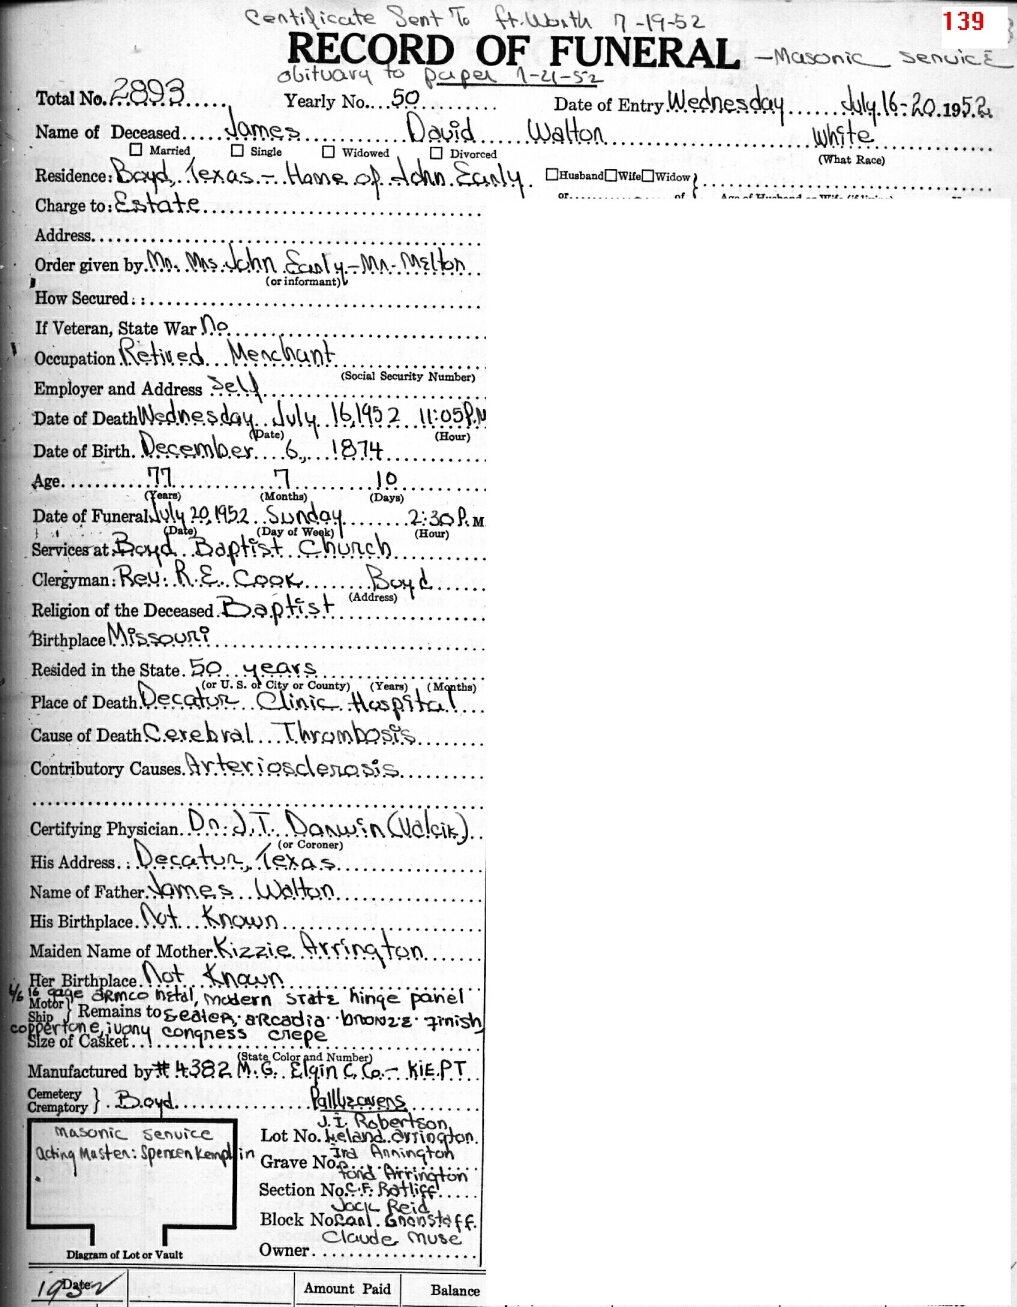 Certificate Sent To ft. Worth 7-19-52
139
RECORD OF FUNERAL - Masonic Service
obituary to paper 7-21-52
Total No. 2893 Yearly No. 50 Date of Entry Wednesday July 16-20, 1952
Name of Deceased James David Walton White
Married Single Widowed Divorced (What Race)
Residence: Boyd, Texas - Home of John Early Husband Wife Widow
or of Age of Husband or Wife (if living)
Charge to: Estate
Address
Order given by Mr. Mrs. John Early - Mr. Melton
(or informant)
How Secured
If Veteran, State War No
Occupation Retired Merchant
(Social Security Number)
Employer and Address Self
Date of Death Wednesday July 16, 1952 11:05 P.M
(Date) (Hour)
Date of Birth December 6, 1874
Age 77 7 10
(Years) (Months) (Days)
Date of Funeral July 20, 1952 Sunday 2:30 P.M
(Date) (Day of Week) (Hour)
Services at Boyd Baptist Church
Clergyman: Rev. R.E. Cook Boyd
(Address)
Religion of the Deceased Baptist
Birthplace Missouri
Resided in the State 50 years
(or U. S. or City or County) (Years) (Months)
Place of Death Decatur Clinic Hospital
Cause of Death Cerebral Thrombosis
Contributory Causes Arteriosclerosis
Certifying Physician Dr. J.T. Darwin
(or Coroner)
His Address Decatur, Texas
Name of Father James Walton
His Birthplace Not Known
Maiden Name of Mother Kizzie Arrington
Her Birthplace Not Known
6/6 16 gage armco metal, modern state hinge panel
Motor Ship Remains to sealer, arcadia bronze finish
coppertone, ivory congress crepe
Size of Casket
(State Color and Number)
Manufactured by #4382 M.G. Elgin C. Co.
Cemetery Crematory Boyd Pallbearers
J.I. Robertson
Masonic Service
Lot No. Leland Arrington
Acting Master: Spencer Kemplin
Ira Arrington
Grave No.
Ford Arrington
Section No. C.F. Ratliff
Jack Reid
Block No. Carl Gronstaff
Claude Muse
Diagram of Lot or Vault Owner
1952 Date Amount Paid Balance